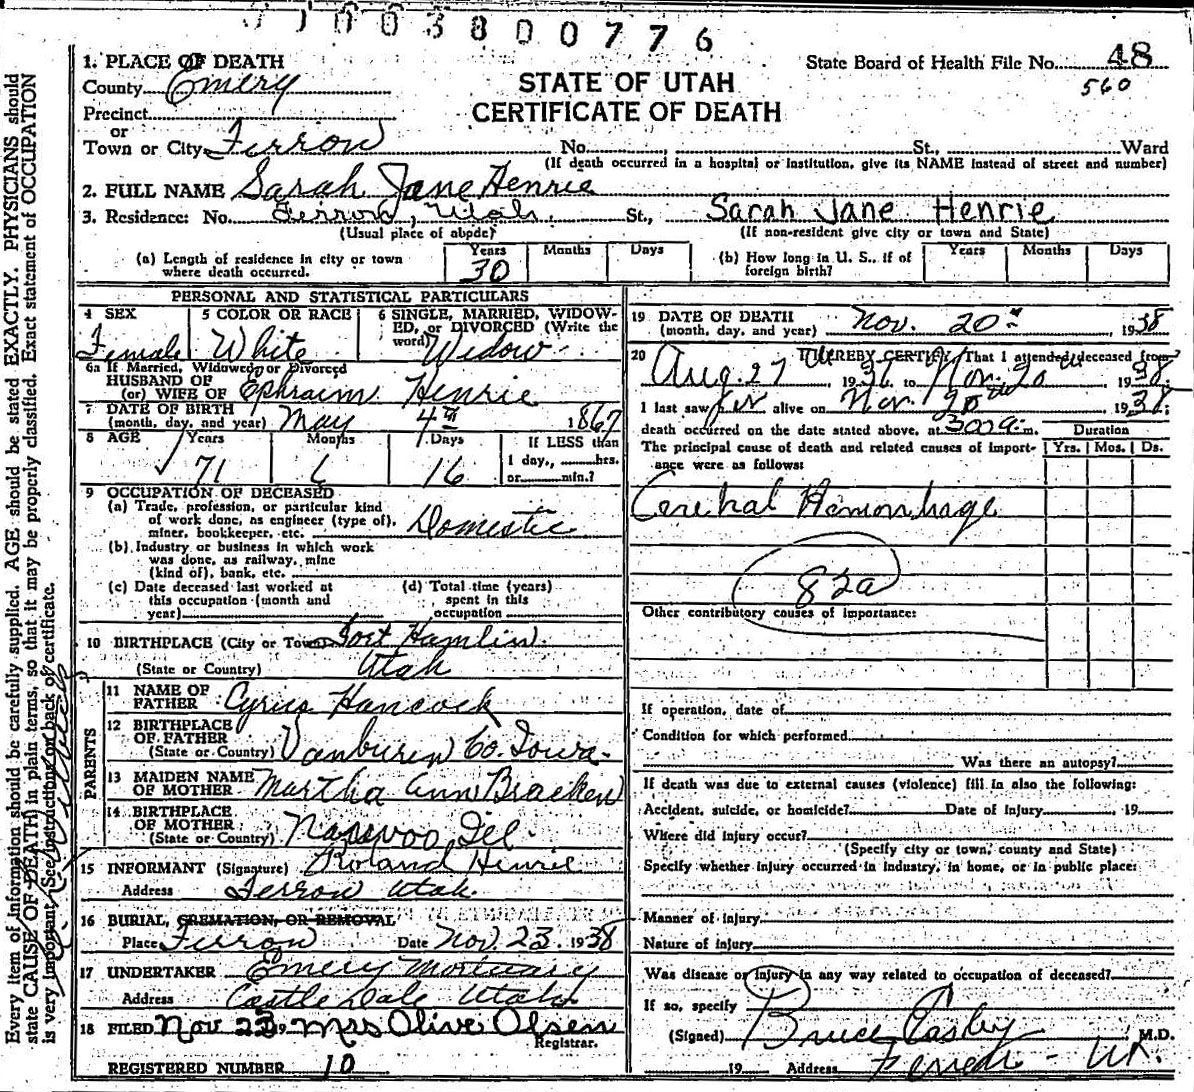 003800776
State Board of Health File No. 48
560
STATE OF UTAH
CERTIFICATE OF DEATH
1. PLACE OF DEATH
County Emery
Precinct
or
Town or City Ferron No. , St., Ward
(If death occurred in a hospital or institution, give its NAME instead of street and number)
2. FULL NAME Sarah Jane Henrie
3. Residence: No. Ferron, Utah. St., Sarah Jane Henrie
(Usual place of abode) (If non-resident give city or town and State)
(a) Length of residence in city or town where death occurred. Years 30 Months Days
(b) How long in U. S., if of foreign birth? Years Months Days
PERSONAL AND STATISTICAL PARTICULARS
4 SEX Female
5 COLOR OR RACE White
6 SINGLE, MARRIED, WIDOWED, or DIVORCED (Write the word) Widow
6a If Married, Widowed, or Divorced
HUSBAND OF
(or) WIFE OF Ephraim Henrie
7 DATE OF BIRTH
(month, day, and year) May 4th 1867
8 AGE Years 71 Months 6 Days 16
If LESS than
1 day, hrs.
or min.?
9 OCCUPATION OF DECEASED
(a) Trade, profession, or particular kind
of work done, as engineer (type of),
miner, bookkeeper, etc. Domestic
(b) Industry or business in which work
was done, as railway, mine
(kind of), bank, etc.
(c) Date deceased last worked at
this occupation (month and
year)
(d) Total time (years)
spent in this
occupation
10 BIRTHPLACE (City or Town) Fort Hamlin
(State or Country) Utah
PARENTS
11 NAME OF
FATHER Cyrus Hancock
12 BIRTHPLACE
OF FATHER
(State or Country) Vanburen Co. Iowa
13 MAIDEN NAME
OF MOTHER Martha Ann Bracken
14 BIRTHPLACE
OF MOTHER
(State or Country) Nauvoo Ill.
15 INFORMANT (Signature) Roland Henrie
Address Ferron Utah.
16 BURIAL, CREMATION, OR REMOVAL
Place Ferron Date Nov. 23, 1938
17 UNDERTAKER Emery Mortuary
Address Castle Dale Utah
18 FILED Nov 23 19 Mrs Olive Olsen
Registrar.
REGISTERED NUMBER 10
19 DATE OF DEATH
(month, day, and year) Nov. 20th, 1938
20 I HEREBY CERTIFY, That I attended deceased from
Aug. 27, 1936 to Nov. 20th, 1938
I last saw her alive on Nov. 20th 1938;
death occurred on the date stated above, at 3:00 a. m.
Duration
Yrs. Mos. Ds.
The principal cause of death and related causes of importance were as follows:
Cerebral Hemorrhage
82a
Other contributory causes of importance:
If operation, date of
Condition for which performed
Was there an autopsy?
If death was due to external causes (violence) fill in also the following:
Accident, suicide, or homicide? Date of Injury 19
Where did injury occur?
(Specify city or town, county and State)
Specify whether injury occurred in industry, in home, or in public place:
Manner of injury
Nature of injury
Was disease or injury in any way related to occupation of deceased?
If so, specify
(Signed) Bruce Easley M.D.
19 Address Ferron - Ut.
Every item of information should be carefully supplied. AGE should be stated EXACTLY. PHYSICIANS should
state CAUSE OF DEATH in plain terms, so that it may be properly classified. Exact statement of OCCUPATION
is very important. (See instructions on back of certificate.